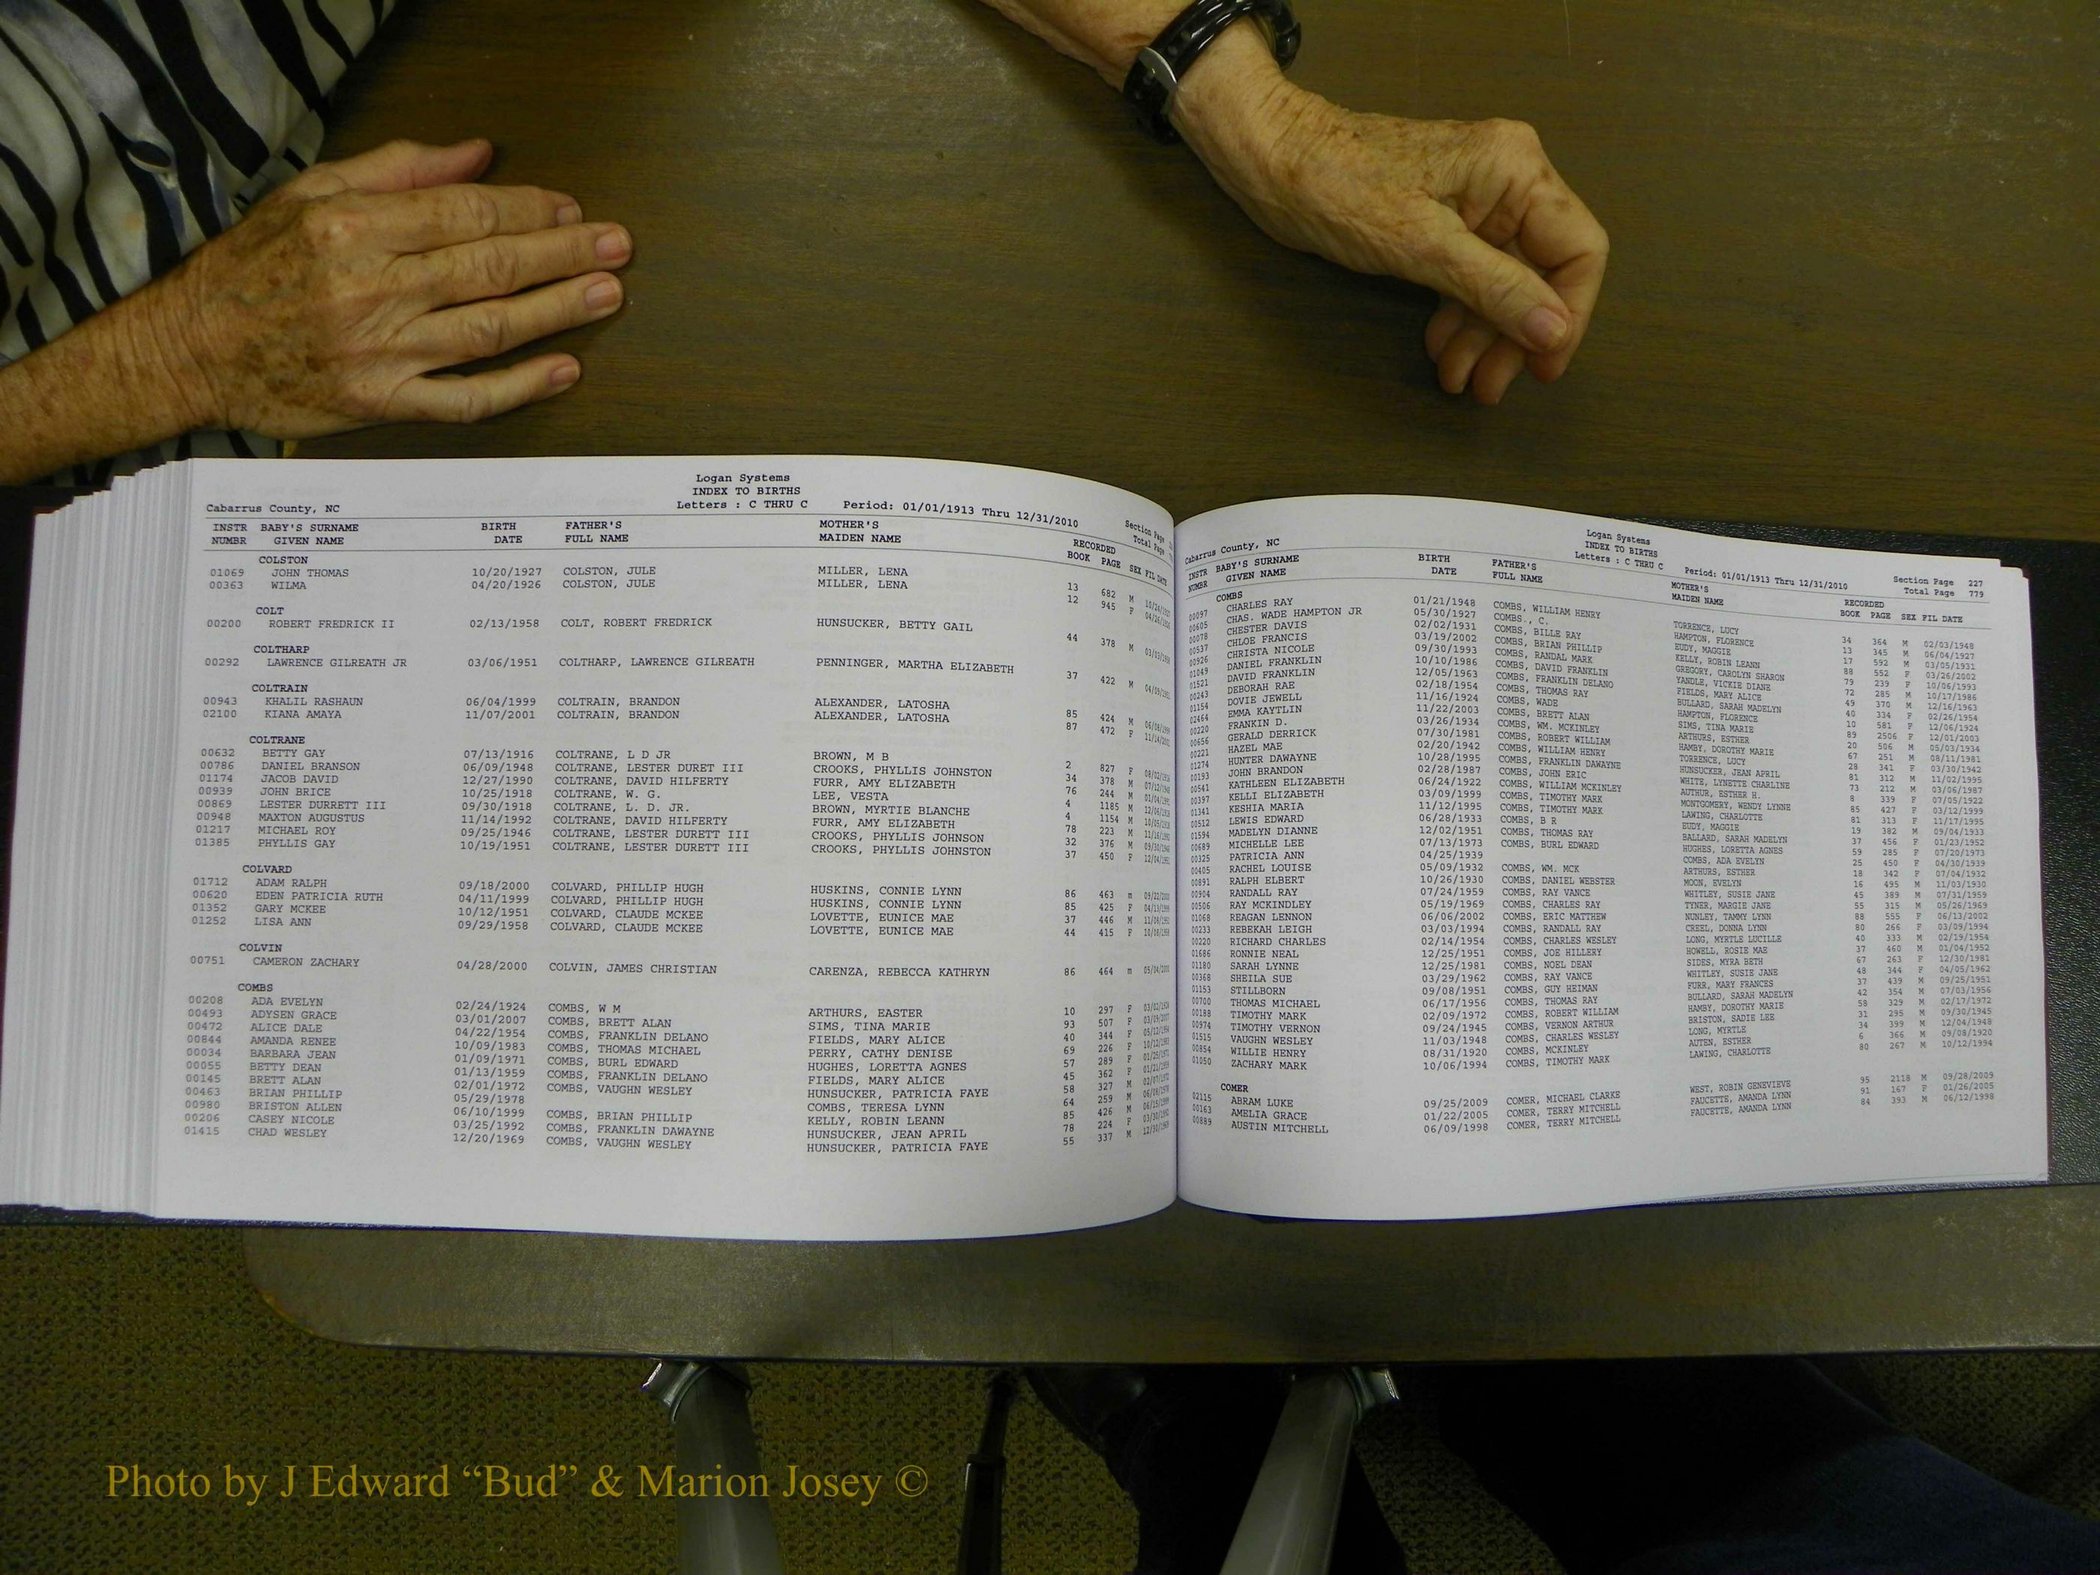 Logan Systems
INDEX TO BIRTHS
Cabarrus County, NC Letters : C THRU C Period: 01/01/1913 Thru 12/31/2010 Section Page Total Page
INSTR BABY'S SURNAME BIRTH FATHER'S MOTHER'S RECORDED
NUMBR GIVEN NAME DATE FULL NAME MAIDEN NAME BOOK PAGE SEX FIL DATE
COLSTON
01069 JOHN THOMAS 10/20/1927 COLSTON, JULE MILLER, LENA 13 682 M
00363 WILMA 04/20/1926 COLSTON, JULE MILLER, LENA 12 945 F
COLT
00200 ROBERT FREDRICK II 02/13/1958 COLT, ROBERT FREDRICK HUNSUCKER, BETTY GAIL 44 378 M
COLTHARP
00292 LAWRENCE GILREATH JR 03/06/1951 COLTHARP, LAWRENCE GILREATH PENNINGER, MARTHA ELIZABETH 37 422 M
COLTRAIN
00943 KHALIL RASHAUN 06/04/1999 COLTRAIN, BRANDON ALEXANDER, LATOSHA 85 424 M
02100 KIANA AMAYA 11/07/2001 COLTRAIN, BRANDON ALEXANDER, LATOSHA 87 472 F
COLTRANE
00632 BETTY GAY 07/13/1916 COLTRANE, L D JR BROWN, M B 2 827 F
00786 DANIEL BRANSON 06/09/1948 COLTRANE, LESTER DURET III CROOKS, PHYLLIS JOHNSTON 34 378 M
01174 JACOB DAVID 12/27/1990 COLTRANE, DAVID HILFERTY FURR, AMY ELIZABETH 76 244 M
00939 JOHN BRICE 10/25/1918 COLTRANE, W. G. LEE, VESTA 4 1185 M
00869 LESTER DURRETT III 09/30/1918 COLTRANE, L. D. JR. BROWN, MYRTIE BLANCHE 4 1154 M
00948 MAXTON AUGUSTUS 11/14/1992 COLTRANE, DAVID HILFERTY FURR, AMY ELIZABETH 78 223 M
01217 MICHAEL ROY 09/25/1946 COLTRANE, LESTER DURETT III CROOKS, PHYLLIS JOHNSON 32 376 M
01385 PHYLLIS GAY 10/19/1951 COLTRANE, LESTER DURETT III CROOKS, PHYLLIS JOHNSTON 37 450 F
COLVARD
01712 ADAM RALPH 09/18/2000 COLVARD, PHILLIP HUGH HUSKINS, CONNIE LYNN 86 463 m
00620 EDEN PATRICIA RUTH 04/11/1999 COLVARD, PHILLIP HUGH HUSKINS, CONNIE LYNN 85 425 F
01352 GARY MCKEE 10/12/1951 COLVARD, CLAUDE MCKEE LOVETTE, EUNICE MAE 37 446 M
01252 LISA ANN 09/29/1958 COLVARD, CLAUDE MCKEE LOVETTE, EUNICE MAE 44 415 F
COLVIN
00751 CAMERON ZACHARY 04/28/2000 COLVIN, JAMES CHRISTIAN CARENZA, REBECCA KATHRYN 86 464 m
COMBS
00208 ADA EVELYN 02/24/1924 COMBS, W M ARTHURS, EASTER 10 297 F
00493 ADYSEN GRACE 03/01/2007 COMBS, BRETT ALAN SIMS, TINA MARIE 93 507 F
00472 ALICE DALE 04/22/1954 COMBS, FRANKLIN DELANO FIELDS, MARY ALICE 40 344 F
00844 AMANDA RENEE 10/09/1983 COMBS, THOMAS MICHAEL PERRY, CATHY DENISE 69 226 F
00034 BARBARA JEAN 01/09/1971 COMBS, BURL EDWARD HUGHES, LORETTA AGNES 57 289 F
00055 BETTY DEAN 01/13/1959 COMBS, FRANKLIN DELANO FIELDS, MARY ALICE 45 362 F
00145 BRETT ALAN 02/01/1972 COMBS, VAUGHN WESLEY HUNSUCKER, PATRICIA FAYE 58 327 M
00463 BRIAN PHILLIP 05/29/1978 COMBS, TERESA LYNN 64 259 M
00980 BRISTON ALLEN 06/10/1999 COMBS, BRIAN PHILLIP KELLY, ROBIN LEANN 85 426 M
00206 CASEY NICOLE 03/25/1992 COMBS, FRANKLIN DAWAYNE HUNSUCKER, JEAN APRIL 78 224 F
01415 CHAD WESLEY 12/20/1969 COMBS, VAUGHN WESLEY HUNSUCKER, PATRICIA FAYE 55 337 M
Logan Systems
INDEX TO BIRTHS
Cabarrus County, NC Letters : C THRU C Period: 01/01/1913 Thru 12/31/2010 Section Page 227
Total Page 779
INSTR BABY'S SURNAME BIRTH FATHER'S MOTHER'S RECORDED
NUMBR GIVEN NAME DATE FULL NAME MAIDEN NAME BOOK PAGE SEX FIL DATE
COMBS
00097 CHARLES RAY 01/21/1948 COMBS, WILLIAM HENRY TORRENCE, LUCY 34 364 M 02/03/1948
00605 CHAS. WADE HAMPTON JR 05/30/1927 COMBS., C. HAMPTON, FLORENCE 13 345 M 06/04/1927
00078 CHESTER DAVIS 02/02/1931 COMBS, BILLE RAY EUDY, MAGGIE 17 592 M 03/05/1931
00537 CHLOE FRANCIS 03/19/2002 COMBS, BRIAN PHILLIP KELLY, ROBIN LEANN 88 552 F 03/26/2002
00926 CHRISTA NICOLE 09/30/1993 COMBS, RANDAL MARK GREGORY, CAROLYN SHARON 79 239 F 10/06/1993
01049 DANIEL FRANKLIN 10/10/1986 COMBS, DAVID FRANKLIN YANDLE, VICKIE DIANE 72 285 M 10/17/1986
01521 DAVID FRANKLIN 12/05/1963 COMBS, FRANKLIN DELANO FIELDS, MARY ALICE 49 370 M 12/16/1963
00243 DEBORAH RAE 02/18/1954 COMBS, THOMAS RAY BULLARD, SARAH MADELYN 40 334 F 02/26/1954
01154 DOVIE JEWELL 11/16/1924 COMBS, WADE HAMPTON, FLORENCE 10 581 F 12/06/1924
02464 EMMA KAYTLIN 11/22/2003 COMBS, BRETT ALAN SIMS, TINA MARIE 89 2506 F 12/01/2003
00220 FRANKIN D. 03/26/1934 COMBS, WM. MCKINLEY ARTHURS, ESTHER 20 506 M 05/03/1934
00656 GERALD DERRICK 07/30/1981 COMBS, ROBERT WILLIAM HAMBY, DOROTHY MARIE 67 251 M 08/11/1981
00221 HAZEL MAE 02/20/1942 COMBS, WILLIAM HENRY TORRENCE, LUCY 28 341 F 03/30/1942
01274 HUNTER DAWAYNE 10/28/1995 COMBS, FRANKLIN DAWAYNE HUNSUCKER, JEAN APRIL 81 312 M 11/02/1995
00193 JOHN BRANDON 02/28/1987 COMBS, JOHN ERIC WHITE, LYNETTE CHARLINE 73 212 M 03/06/1987
00541 KATHLEEN ELIZABETH 06/24/1922 COMBS, WILLIAM MCKINLEY AUTHUR, ESTHER H. 8 339 F 07/05/1922
00397 KELLI ELIZABETH 03/09/1999 COMBS, TIMOTHY MARK MONTGOMERY, WENDY LYNNE 85 427 F 03/12/1999
01341 KESHIA MARIA 11/12/1995 COMBS, TIMOTHY MARK LAWING, CHARLOTTE 81 313 F 11/17/1995
00512 LEWIS EDWARD 06/28/1933 COMBS, B R EUDY, MAGGIE 19 382 M 09/04/1933
01594 MADELYN DIANNE 12/02/1951 COMBS, THOMAS RAY BALLARD, SARAH MADELYN 37 456 F 01/23/1952
00689 MICHELLE LEE 07/13/1973 COMBS, BURL EDWARD HUGHES, LORETTA AGNES 59 285 F 07/20/1973
00325 PATRICIA ANN 04/25/1939 COMBS, ADA EVELYN 25 450 F 04/30/1939
00405 RACHEL LOUISE 05/09/1932 COMBS, WM. MCK ARTHURS, ESTHER 18 342 F 07/04/1932
00891 RALPH ELBERT 10/26/1930 COMBS, DANIEL WEBSTER MOON, EVELYN 16 495 M 11/03/1930
00904 RANDALL RAY 07/24/1959 COMBS, RAY VANCE WHITLEY, SUSIE JANE 45 389 M 07/31/1959
00506 RAY MCKINDLEY 05/19/1969 COMBS, CHARLES RAY TYNER, MARGIE JANE 55 315 M 05/26/1969
01068 REAGAN LENNON 06/06/2002 COMBS, ERIC MATTHEW NUNLEY, TAMMY LYNN 88 555 F 06/13/2002
00233 REBEKAH LEIGH 03/03/1994 COMBS, RANDALL RAY CREEL, DONNA LYNN 80 266 F 03/09/1994
00220 RICHARD CHARLES 02/14/1954 COMBS, CHARLES WESLEY LONG, MYRTLE LUCILLE 40 333 M 02/19/1954
01686 RONNIE NEAL 12/25/1951 COMBS, JOE HILLERY HOWELL, ROSIE MAE 37 460 M 01/04/1952
01180 SARAH LYNNE 12/25/1981 COMBS, NOEL DEAN SIDES, MYRA BETH 67 263 F 12/30/1981
00368 SHEILA SUE 03/29/1962 COMBS, RAY VANCE WHITLEY, SUSIE JANE 48 344 F 04/05/1962
01153 STILLBORN 09/08/1951 COMBS, GUY HEIMAN FURR, MARY FRANCES 37 439 M 09/25/1951
00700 THOMAS MICHAEL 06/17/1956 COMBS, THOMAS RAY BULLARD, SARAH MADELYN 42 354 M 07/03/1956
00188 TIMOTHY MARK 02/09/1972 COMBS, ROBERT WILLIAM HAMBY, DOROTHY MARIE 58 329 M 02/17/1972
00974 TIMOTHY VERNON 09/24/1945 COMBS, VERNON ARTHUR BRISTON, SADIE LEE 31 295 M 09/30/1945
01515 VAUGHN WESLEY 11/03/1948 COMBS, CHARLES WESLEY LONG, MYRTLE 34 399 M 12/04/1948
00854 WILLIE HENRY 08/31/1920 COMBS, MCKINLEY AUTEN, ESTHER 6 366 M 09/08/1920
01050 ZACHARY MARK 10/06/1994 COMBS, TIMOTHY MARK LAWING, CHARLOTTE 80 267 M 10/12/1994
COMER
02115 ABRAM LUKE 09/25/2009 COMER, MICHAEL CLARKE WEST, ROBIN GENEVIEVE 95 2118 M 09/28/2009
00163 AMELIA GRACE 01/22/2005 COMER, TERRY MITCHELL FAUCETTE, AMANDA LYNN 91 167 F 01/26/2005
00889 AUSTIN MITCHELL 06/09/1998 COMER, TERRY MITCHELL FAUCETTE, AMANDA LYNN 84 393 M 06/12/1998
Photo by J Edward “Bud” & Marion Josey ©